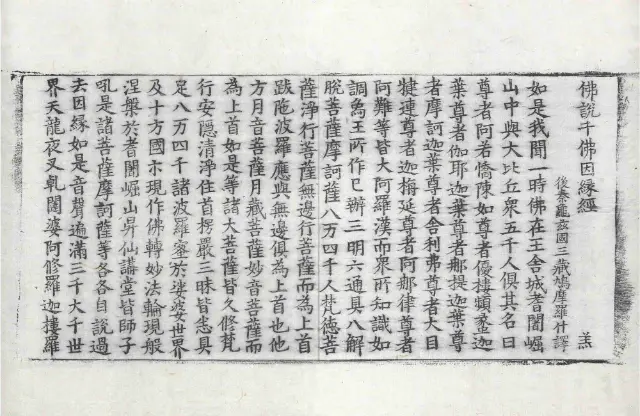 佛說千佛因緣經
後秦龜玆國三藏鳩摩羅什譯
羔
如是我聞一時佛在王舍城耆闍崛
山中與大比丘衆五千人俱其名曰
尊者阿若憍陳如尊者優樓頻蠡迦
葉尊者伽耶迦葉尊者那提迦葉尊
者摩訶迦葉尊者舍利弗尊者大目
犍連尊者迦栴延尊者阿那律尊者
阿難等皆大阿羅漢而衆所知識如
調爲王所作已辦三明六通具八解
脫菩薩摩訶薩八万四千人梵德菩
薩淨行菩薩無邊行菩薩而爲上首
跋陁波羅應與無邊俱爲上首也他
方月音菩薩月藏菩薩妙音菩薩而
爲上首如是等諸大菩薩皆久修梵
行安隱清淨住首楞嚴三昧皆悉具
足八万四千諸波羅蜜於娑婆世界
及十方國示現作佛轉妙法輪現般
涅槃於耆闍崛山與仙講堂皆師子
吼是諸菩薩摩訶薩等各各自說過
去因緣如是音聲遍滿三千大千世
界天龍夜叉乹闥婆阿修羅迦樓羅